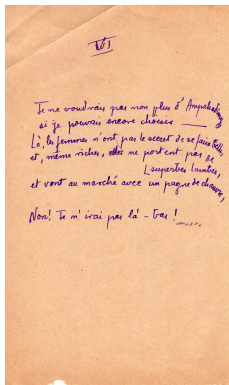 N° 1
Je ne voudrais pas non plus d'
si je pouvais encore choisir ——
Là, les femmes n'ont pas le secret de se faire belles
et, même riches, elles ne portent pas de
[superbes lambas,
et vont au marché avec un pagne de chanvre,
Non! Je n'irai pas là-bas!